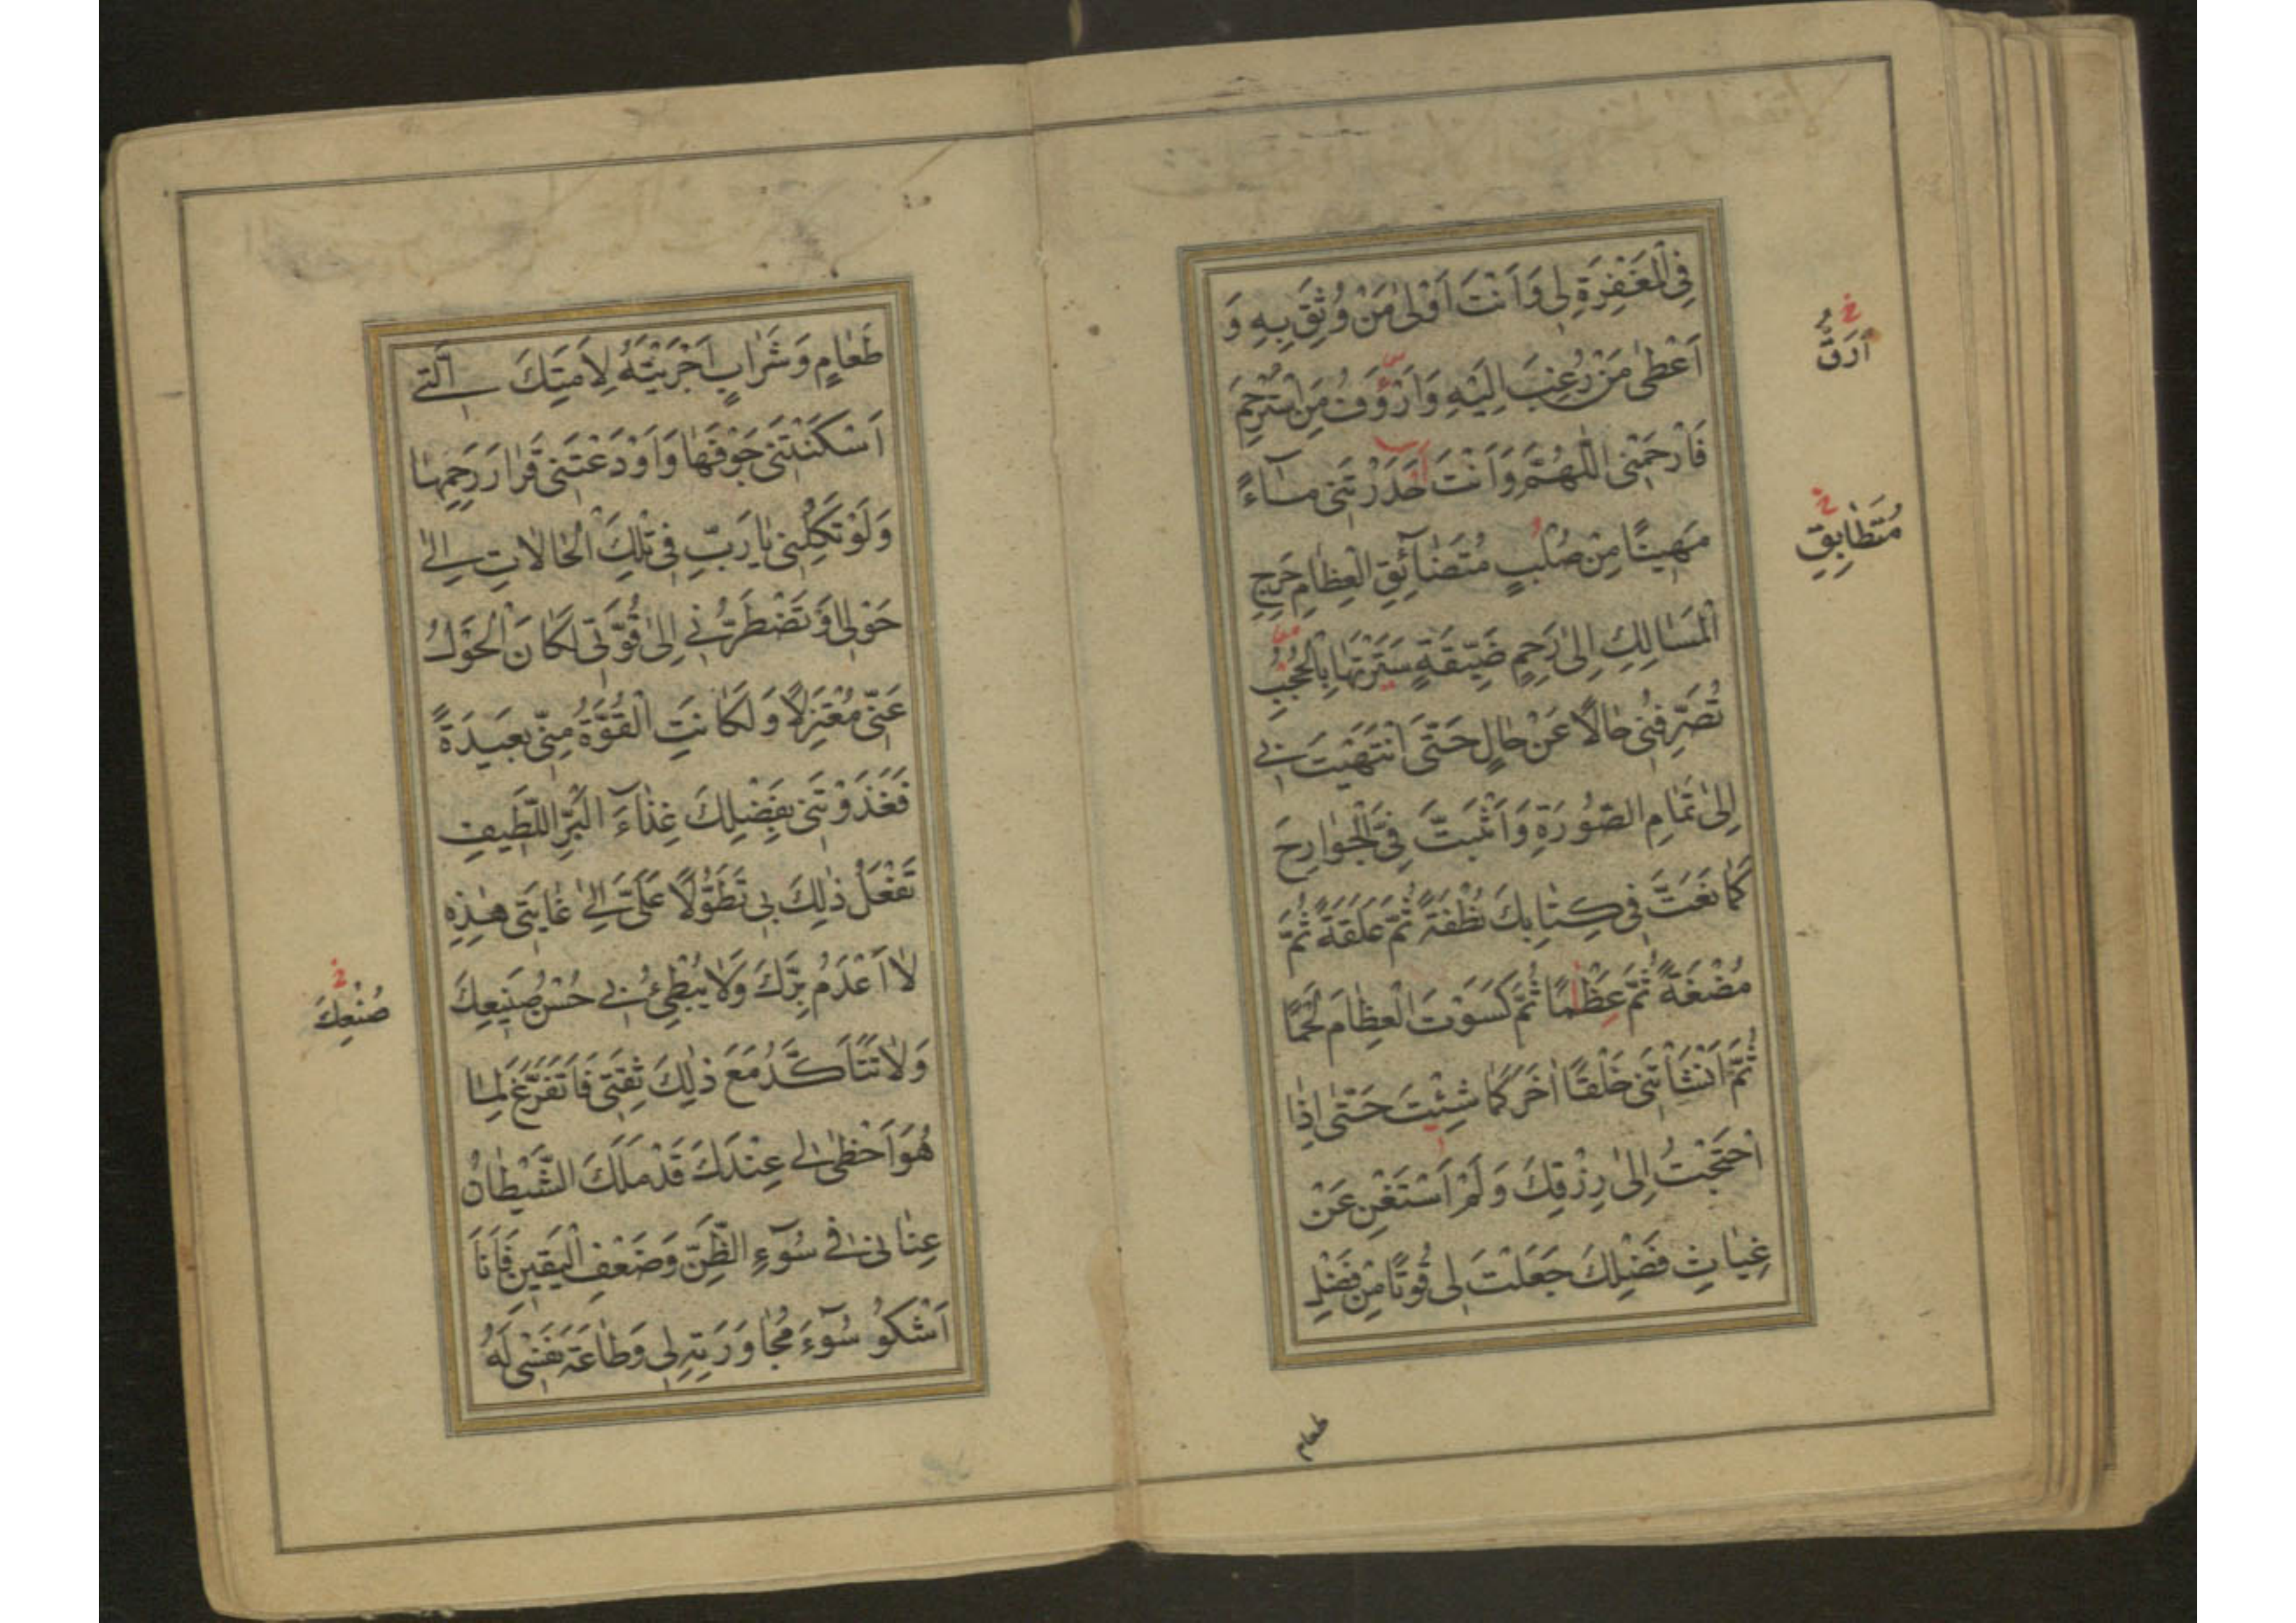 فِى الْمَغْفِرَةِ لِى وَاَنْتَ اَوْلىٰ مَنْ وُثِقَ بِهِ وَ
اَعْطىٰ مَنْ رُغِبَ اِلَيْهِ وَاَرْؤَفُ مَنِ اسْتُرْحِمَ
اَرَقُّ
خ
فَارْحَمْنِى اللّٰهُمَّ وَاَنْتَ حَدَرْتَنِى مٰاءً
مَهِينًا مِنْ صُلْبٍ مُتَضٰائِقِ الْعِظٰامِ حَرِجِ
مُتَطٰابِقِ
خ
الْمَسٰالِكِ اِلىٰ رَحِمٍ ضَيِّقَةٍ سَتَرْتَهٰا بِالْحُجُبِ
تُصَرِّفُنِى حٰالًا عَنْ حٰالٍ حَتّٰى انْتَهَيْتَ بِى
اِلىٰ تَمٰامِ الصُّورَةِ وَاَثْبَتَّ فِىَّ الْجَوٰارِحَ
كَمٰا نَعَتَّ فِى كِتٰابِكَ نُطْفَةً ثُمَّ عَلَقَةً ثُمَّ
مُضْغَةً ثُمَّ عِظٰمًا ثُمَّ كَسَوْتَ الْعِظٰامَ لَحْمًا
ثُمَّ اَنْشَأْتَنِى خَلْقًا اٰخَرَ كَمٰا شِئْتَ حَتّٰى اِذَا
احْتَجْتُ اِلىٰ رِزْقِكَ وَلَمْ اَسْتَغْنِ عَنْ
غِيٰاثِ فَضْلِكَ جَعَلْتَ لِى قُوتًا مِنْ فَضْلِ
طعام
طَعٰامٍ وَشَرٰابٍ اَجْرَيْتَهُ لِاَمَتِكَ الَّتِى
اَسْكَنْتَنِى جَوْفَهٰا وَاَوْدَعْتَنِى قَرٰارَ رَحِمِهٰا
وَلَوْ تَكِلْنِى يٰا رَبِّ فِى تِلْكَ الْحٰالٰاتِ اِلىٰ
حَوْلِى اَوْ تَضْطَرُّنِى اِلىٰ قُوَّتِى لَكٰانَ الْحَوْلُ
عَنِّى مُعْتَزِلًا وَلَكٰانَتِ الْقُوَّةُ مِنِّى بَعِيدَةً
فَغَذَوْتَنِى بِفَضْلِكَ غِذٰاءَ الْبَرِّ اللَّطِيفِ
تَفْعَلُ ذٰلِكَ بِى تَطَوُّلًا عَلَىَّ اِلىٰ غٰايَتِى هٰذِهِ
لٰا اَعْدَمُ بِرَّكَ وَلٰا يُبْطِئُ بِى حُسْنُ صَنِيعِكَ
خ
صُنْعِكَ
وَلٰا تَتَاَكَّدُ مَعَ ذٰلِكَ ثِقَتِى فَاَتَفَرَّغَ لِمٰا
هُوَ اَحْظىٰ لِى عِنْدَكَ قَدْ مَلَكَ الشَّيْطٰانُ
عِنٰانِى فِى سُوٓءِ الظَّنِّ وَضَعْفِ الْيَقِينِ فَاَنَا
اَشْكُو سُوٓءَ مُجٰاوَرَتِهِ لِى وَطٰاعَةَ نَفْسِى لَهُ